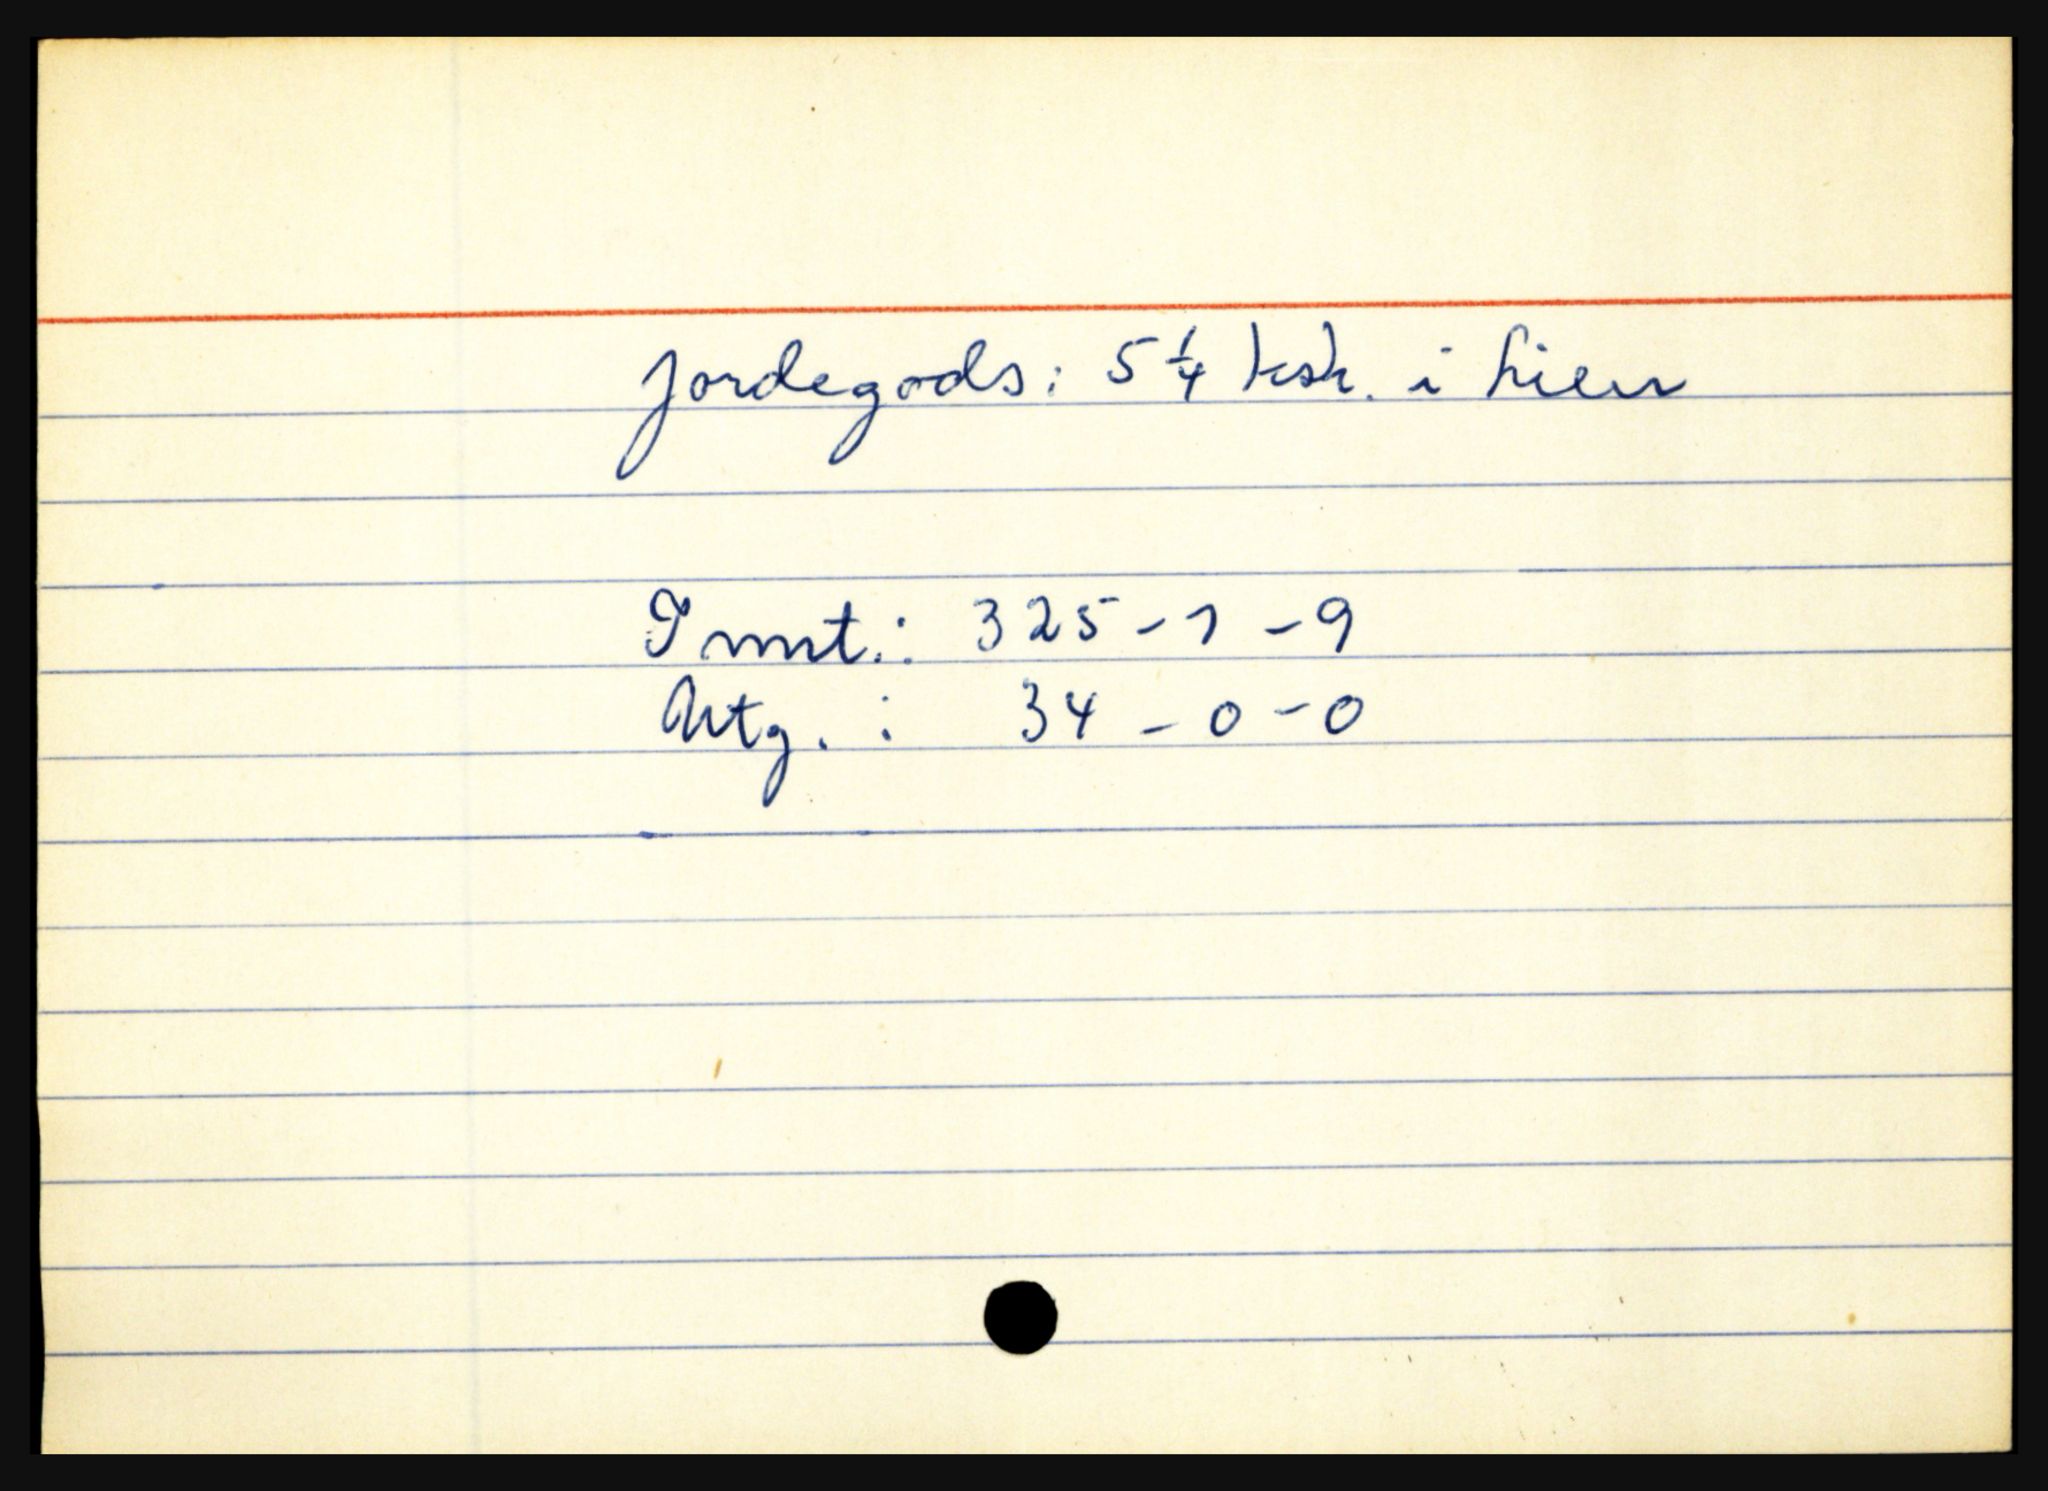 Jordegods: 5 1/4 ksk. i Lien
Innt.: 325 - 1 - 9
Utg. : 34 - 0 - 0